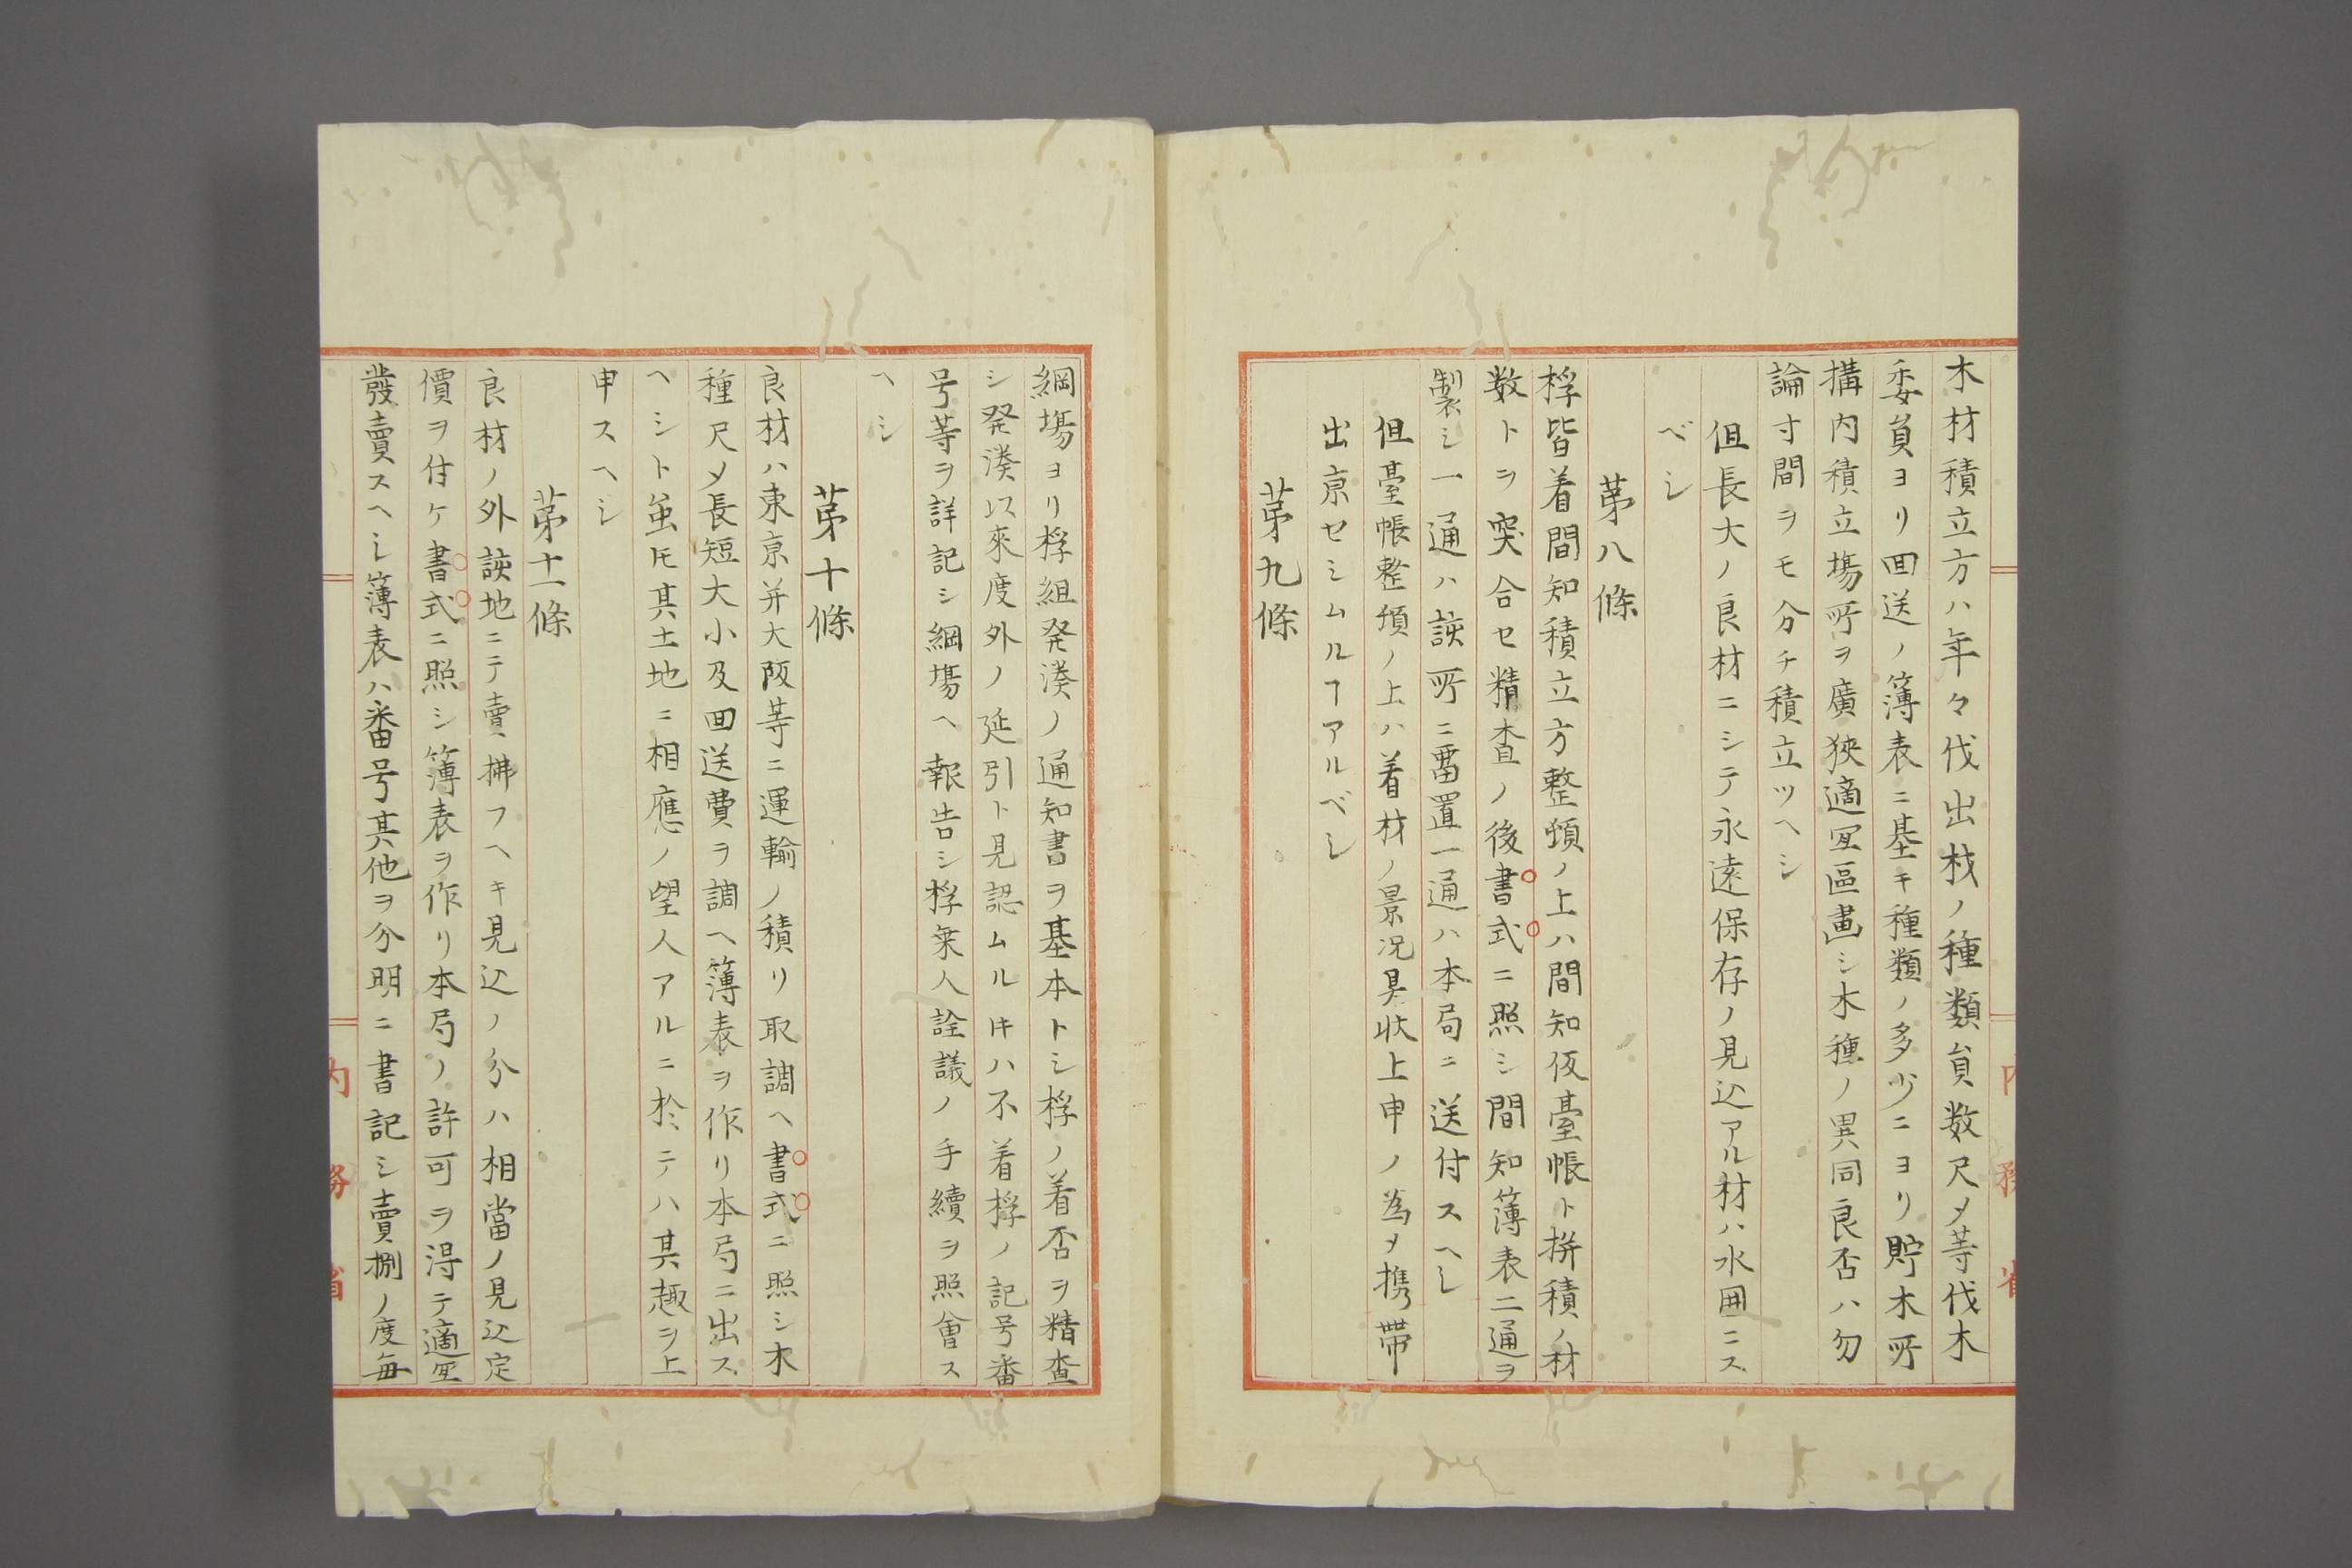 木材積立方ハ年々伐出材ノ種類員数尺〆等伐木
委員ヨリ回送ノ簿表ニ基キ種類ノ多少ニヨリ貯木所
構内積立場所ヲ廣狹適宜區畫シ木種ノ異同良否ハ勿
論寸間ヲモ分チ積立ツヘシ
但長大ノ良材ニシテ永遠保存ノ見込アル材ハ水囲ニス
ベシ
第八條
桴皆着間知積立方整頓ノ上ハ間知仮臺帳ト拼積ノ材
数トヲ突合セ精査ノ後書式ニ照シ間知簿表二通ヲ
製シ一通ハ該所ニ畱置一通ハ本局ニ送付スヘシ
但臺帳整頓ノ上ハ着材ノ景况具状上申ノ為メ携帶
出京セシムルヿアルベシ
第九條
綱塲ヨリ桴組発湊ノ通知書ヲ基本トシ桴ノ着否ヲ精査
シ発湊以來度外ノ延引ト見認ムルキハ不着桴ノ記号番
号等ヲ詳記シ綱塲ヘ報告シ桴乗人詮議ノ手續ヲ照會ス
ヘシ
第十條
良材ハ東京并大阪等ニ運輸ノ積リ取調ヘ書式ニ照シ木
種尺〆長短大小及回送費ヲ調ヘ簿表ヲ作リ本局ニ出ス
ヘシト虽𪜈其土地ニ相應ノ望人アルニ於テハ其趣ヲ上
申スヘシ
第十一條
良材ノ外該地ニテ賣拂フヘキ見込ノ分ハ相當ノ見込定
價ヲ付ケ書式ニ照シ簿表ヲ作リ本局ノ許可ヲ得テ適宜
發賣スヘシ簿表ハ番号其他ヲ分明ニ書記シ賣捌ノ度毎
内務省